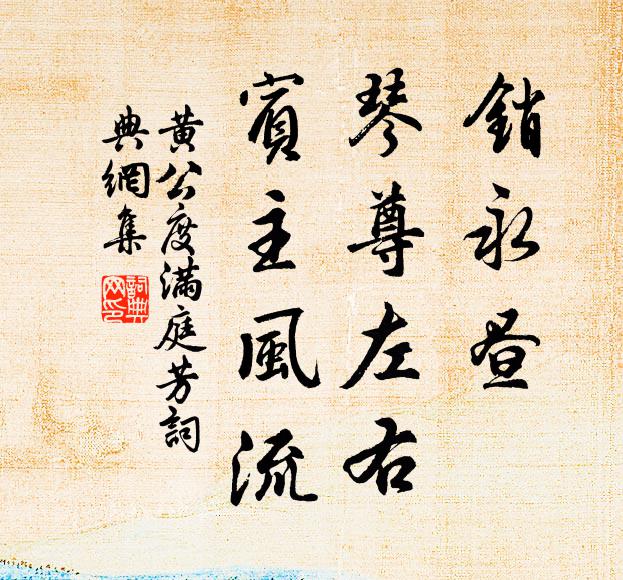 銷永晝
琴尊左右
賓主風流
黃公度滿庭芳詞
典網集
詞典
网印